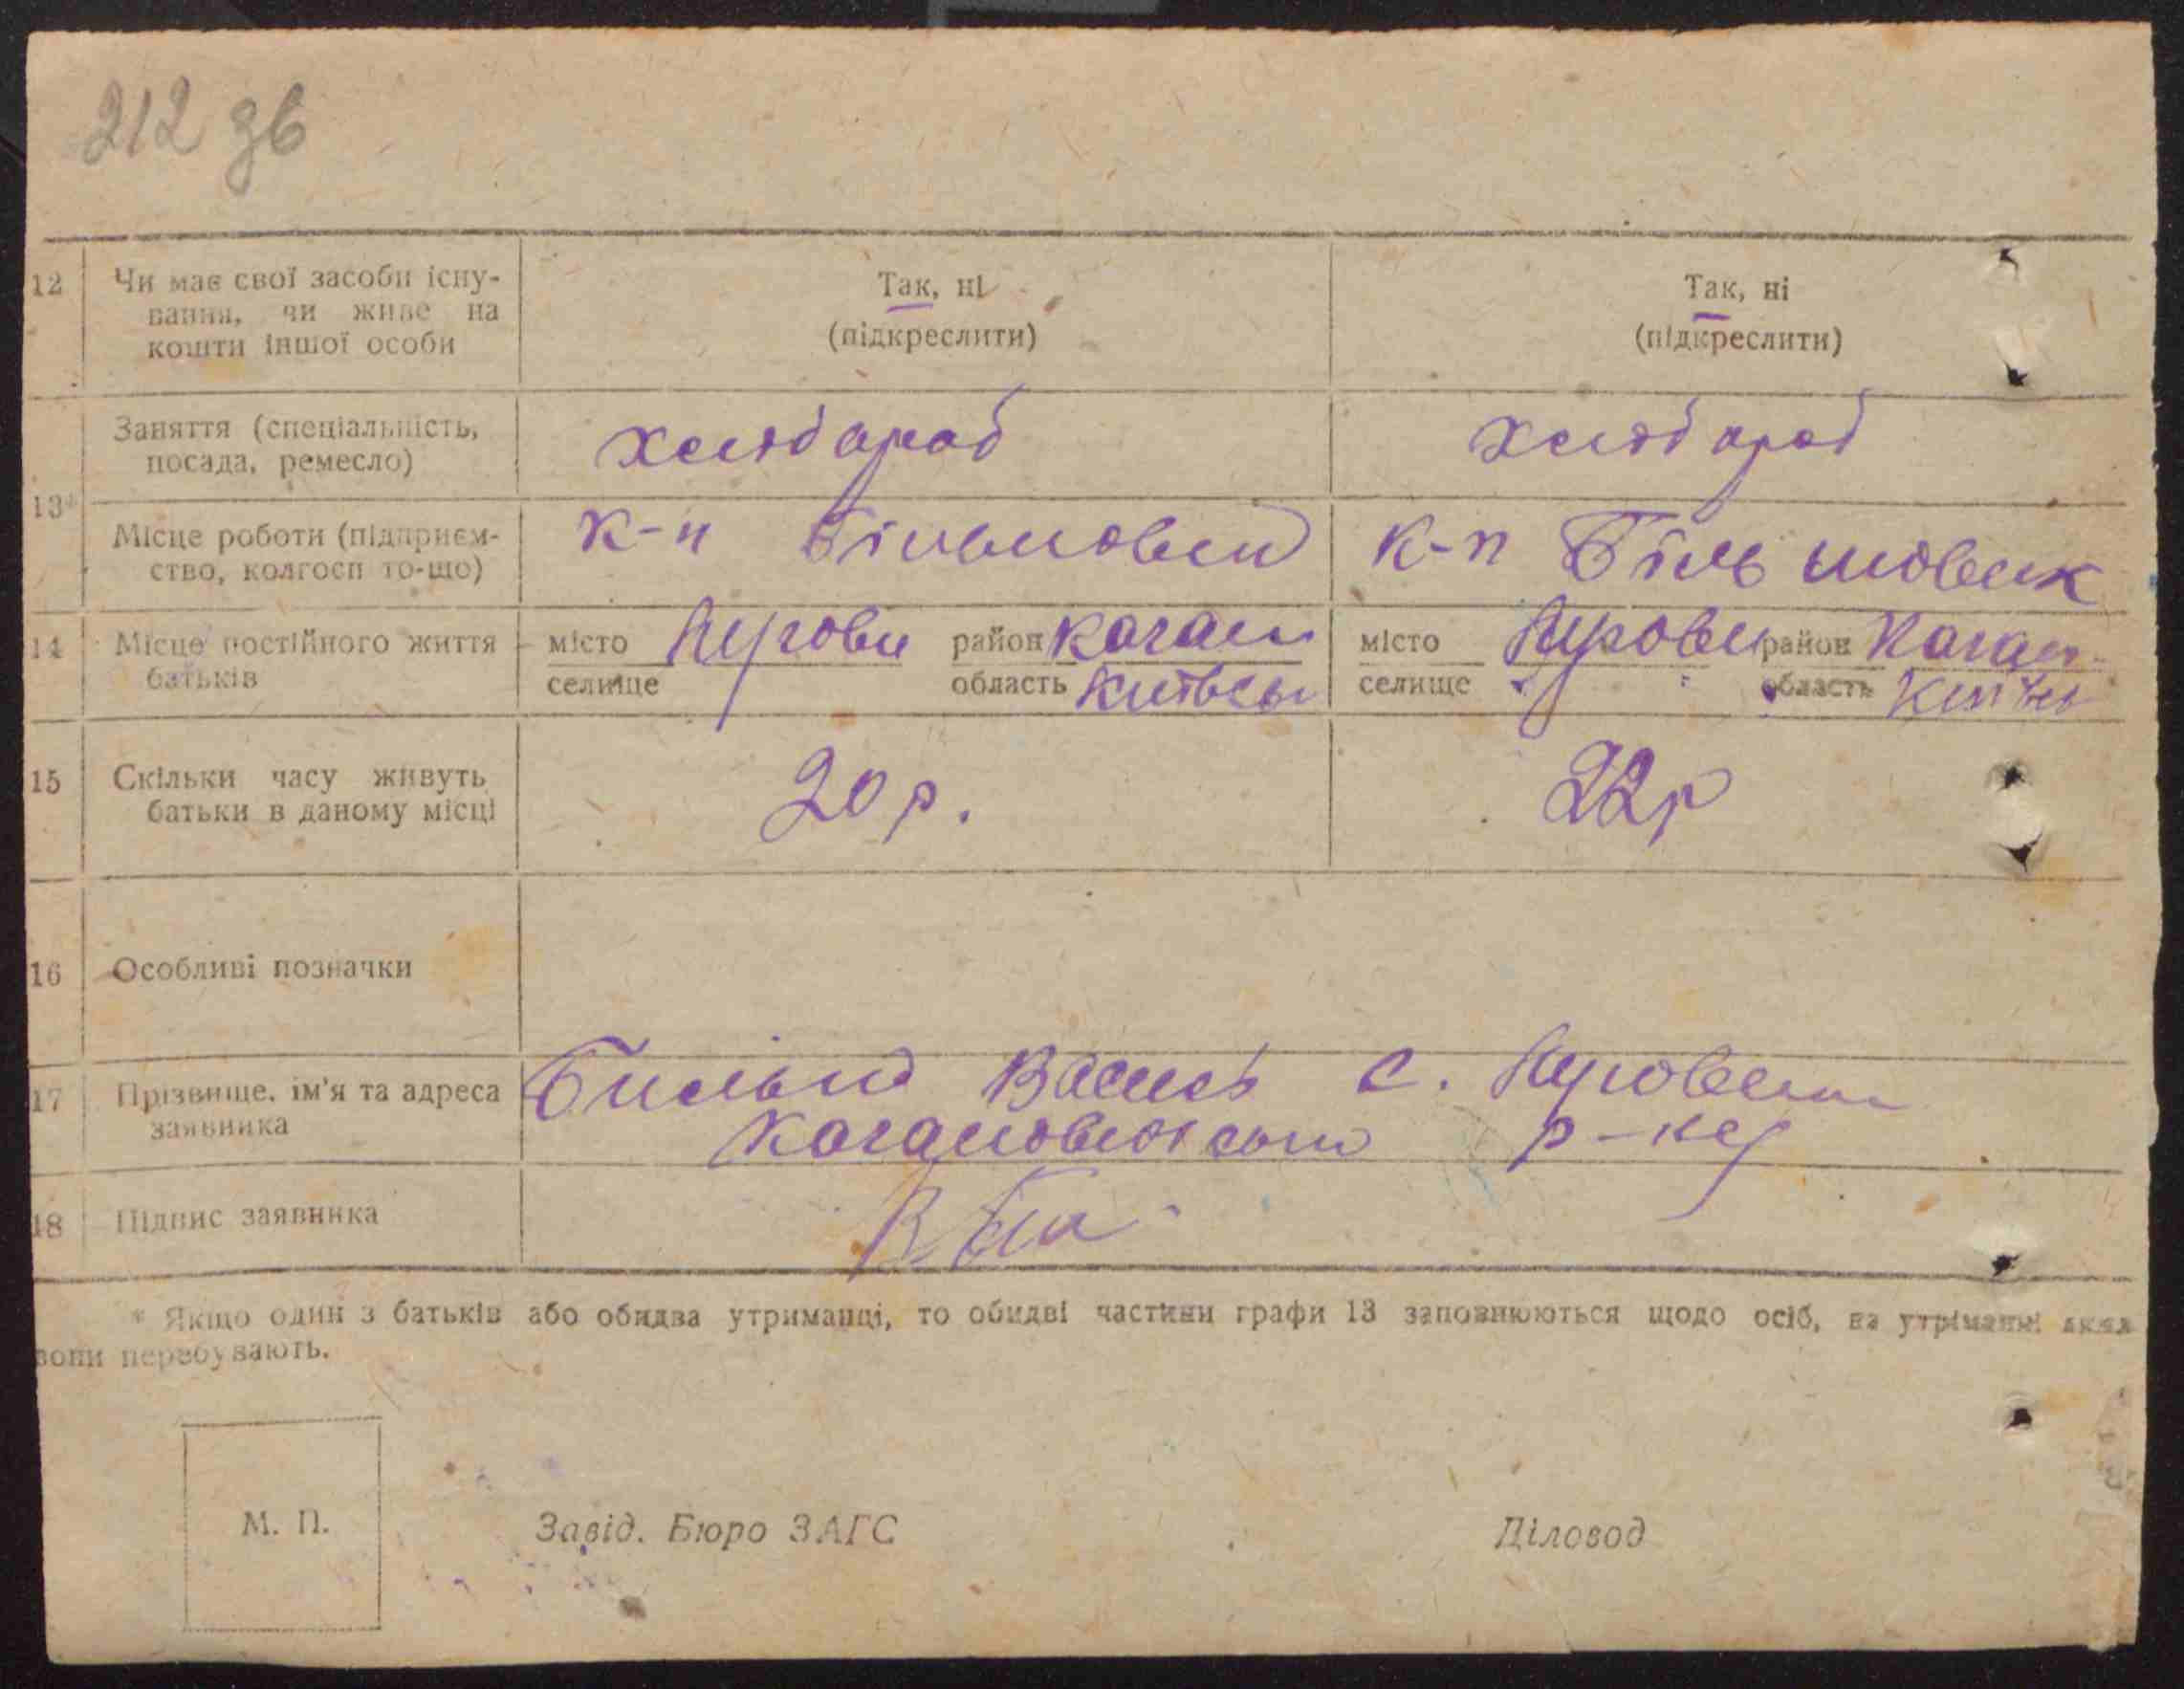 212 зв
12 Чи має свої засоби існу-
вання, чи живе на
кошти іншої особи
Так, ні
(підкреслити)
Так, ні
(підкреслити)
13*
Заняття (спеціальність,
посада, ремесло)
хлібороб
хлібороб
Місце роботи (підприєм-
ство, колгосп то-що)
к-п Більшовик
к-п Більшовик
14 Місце постійного життя
батьків
місто
селище
район Каган
область Київсь
місто
селище
район Каган-
область Київсь
15 Скільки часу живуть
батьки в даному місці
20 р.
22 р
16 Особливі позначки
17 Прізвище, ім'я та адреса
заявника
Василь с.
Кагановическою р-ну
18 Підпис заявника
* Якщо один з батьків або обидва утриманці, то обидві частини графи 13 заповнюються щодо осіб, на утріманні яких
вони перебувають.
М. П.
Завід. Бюро ЗАГС
Діловод